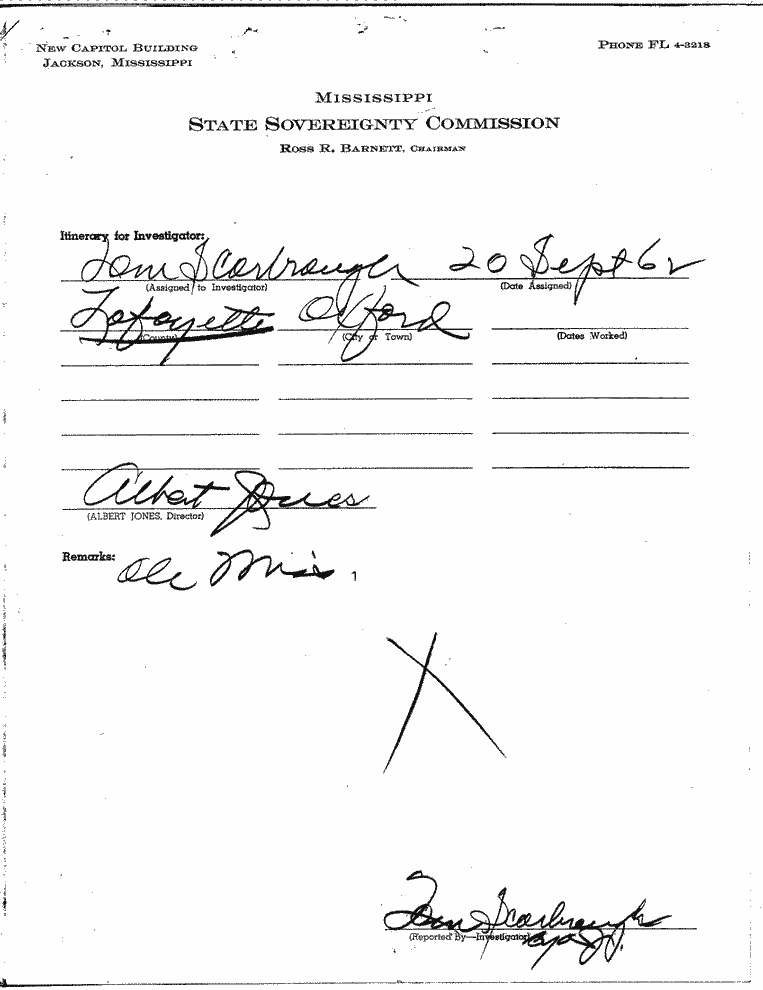 NEW CAPITOL BUILDING
JACKSON, MISSISSIPPI
PHONE FL 4-3218
MISSISSIPPI
STATE SOVEREIGNTY COMMISSION
ROSS R. BARNETT, CHAIRMAN
Itinerary for Investigator:
Tom Scarbrough 20 Sept 62
(Assigned to Investigator) (Date Assigned)
Lafayette Oxford
(County) (City or Town) (Dates Worked)
Albert Jones
(ALBERT JONES, Director)
Remarks: Ole Miss
Tom Scarbrough
(Reported By—Investigator)